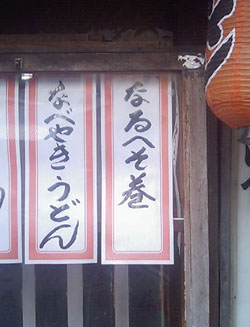 なるへそ巻
なべやきうどん